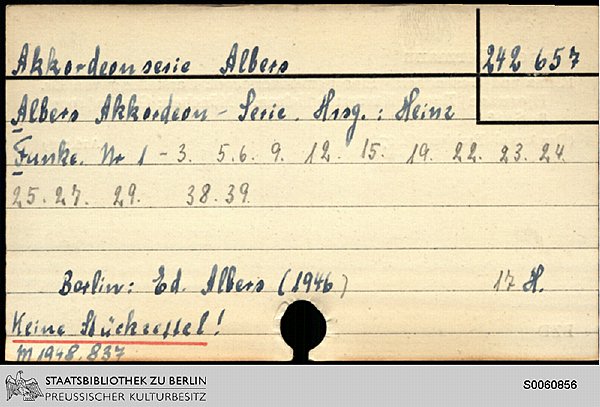 Akkordeonserie Albers 242 657
Albers Akkordeon - Serie. Hrsg.: Heinz
Funke. Nr 1 - 3. 5.6. 9. 12. 15. 19. 22. 23. 24.
25. 27. 29. 38. 39.
Berlin: Ed. Albers (1946) 17 H.
Keine Stückzettel!
M 1948. 837
STAATSBIBLIOTHEK ZU BERLIN
PREUSSISCHER KULTURBESITZ
S0060856